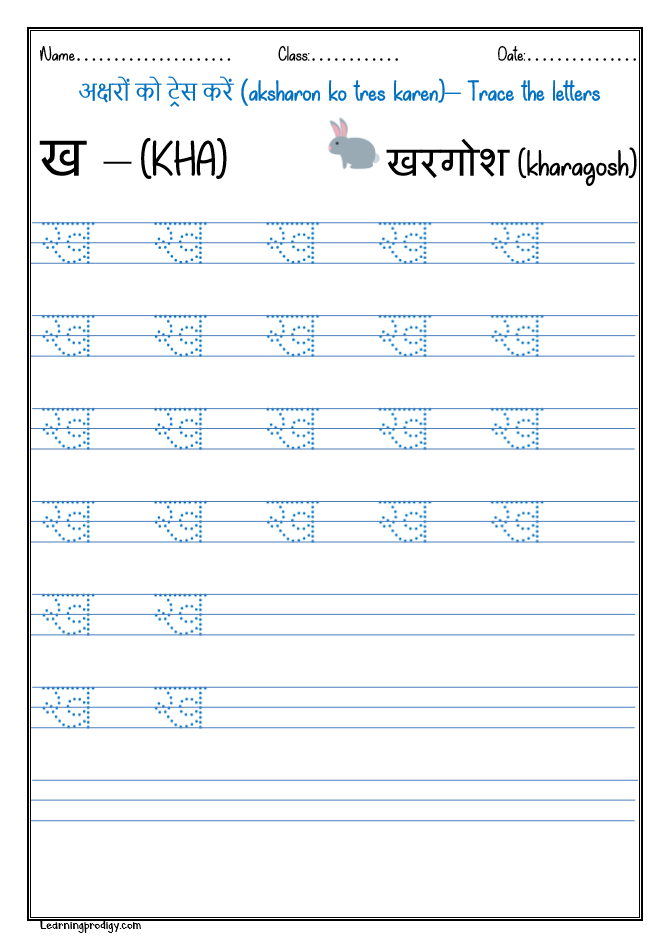 Name..................... Class:............ Date:...............
अक्षरों को ट्रेस करें (aksharon ko tres karen)– Trace the letters
ख – (KHA) खरगोश (kharagosh)
ख ख ख ख ख
ख ख ख ख ख
ख ख ख ख ख
ख ख ख ख ख
ख ख
ख ख
Learningprodigy.com